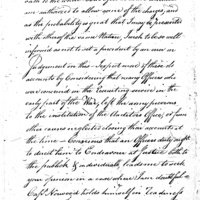 are authorized to allow some of the charges, and
as the probability is great that I may be presented
with others of the same Nature, I wish to be so well
informed as not to set a precedent by an error in
Judgement on this subject some of these do
accounts by Considering that many Officers who
were concerned in the recruiting service in the
early part of the War, left the army previous
to the institution of the Auditors Office, or from
other causes neglected closing their accounts at
the time — Conscious that an Officers duty ought
to direct him to Endeavour at Justice both to
the publick & individuals, leads me to ask
your opinion in a case where I am doubtful
Capt. Howard holds himself in readiness